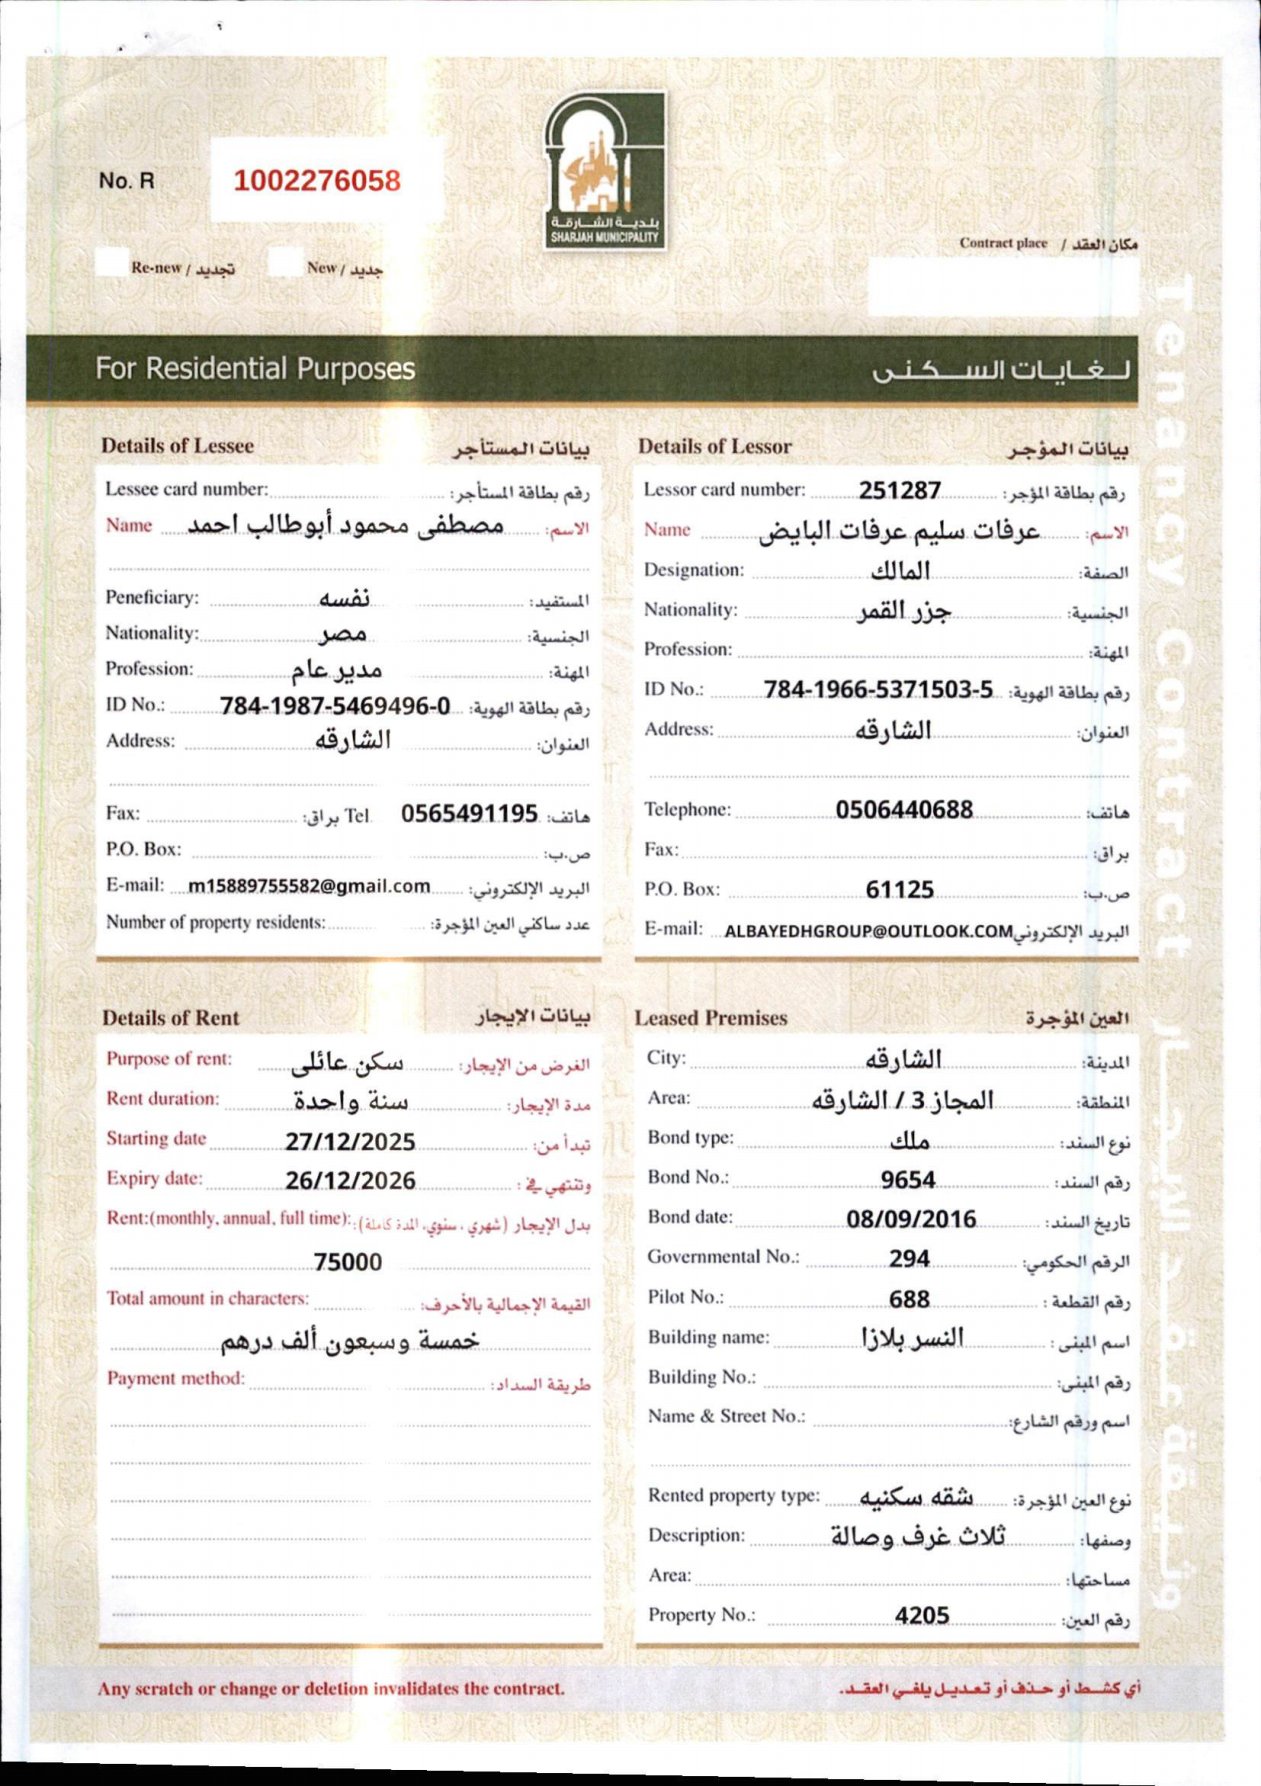 بلدية الشارقة
SHARJAH MUNICIPALITY
No. R 1002276058
Re-new / تجديد New / جديد
Contract place / مكان العقد
For Residential Purposes لغايات السكنى
Tenancy Contract وثيقة عقد الإيجار
Details of Lessee بيانات المستأجر
Lessee card number: رقم بطاقة المستأجر:
Name مصطفى محمود أبوطالب احمد الاسم:
Peneficiary: نفسه المستفيد:
Nationality: مصر الجنسية:
Profession: مدير عام المهنة:
ID No.: 784-1987-5469496-0 رقم بطاقة الهوية:
Address: الشارقه العنوان:
Fax: براق: Tel 0565491195 هاتف:
P.O. Box: ص.ب:
E-mail: m15889755582@gmail.com البريد الإلكتروني:
Number of property residents: عدد ساكني العين المؤجرة:
Details of Lessor بيانات المؤجر
Lessor card number: 251287 رقم بطاقة المؤجر:
Name عرفات سليم عرفات البايض الاسم:
Designation: المالك الصفة:
Nationality: جزر القمر الجنسية:
Profession: المهنة:
ID No.: 784-1966-5371503-5 رقم بطاقة الهوية:
Address: الشارقه العنوان:
Telephone: 0506440688 هاتف:
Fax: براق:
P.O. Box: 61125 ص.ب:
E-mail: ALBAYEDHGROUP@OUTLOOK.COM البريد الإلكتروني
Details of Rent بيانات الإيجار
Purpose of rent: سكن عائلى الغرض من الإيجار:
Rent duration: سنة واحدة مدة الإيجار:
Starting date 27/12/2025 تبدأ من:
Expiry date: 26/12/2026 وتنتهي في:
Rent:(monthly, annual, full time): بدل الإيجار (شهري، سنوي، المدة كاملة):
75000
Total amount in characters: القيمة الإجمالية بالأحرف:
خمسة وسبعون ألف درهم
Payment method: طريقة السداد:
Leased Premises العين المؤجرة
City: الشارقه المدينة:
Area: المجاز 3 / الشارقه المنطقة:
Bond type: ملك نوع السند:
Bond No.: 9654 رقم السند:
Bond date: 08/09/2016 تاريخ السند:
Governmental No.: 294 الرقم الحكومي:
Pilot No.: 688 رقم القطعة :
Building name: النسر بلازا اسم المبنى :
Building No.: رقم المبنى:
Name & Street No.: اسم ورقم الشارع:
Rented property type: شقه سكنيه نوع العين المؤجرة:
Description: ثلاث غرف وصالة وصفها:
Area: مساحتها:
Property No.: 4205 رقم العين:
Any scratch or change or deletion invalidates the contract. أي كشط أو حذف أو تعديل يلغي العقد.